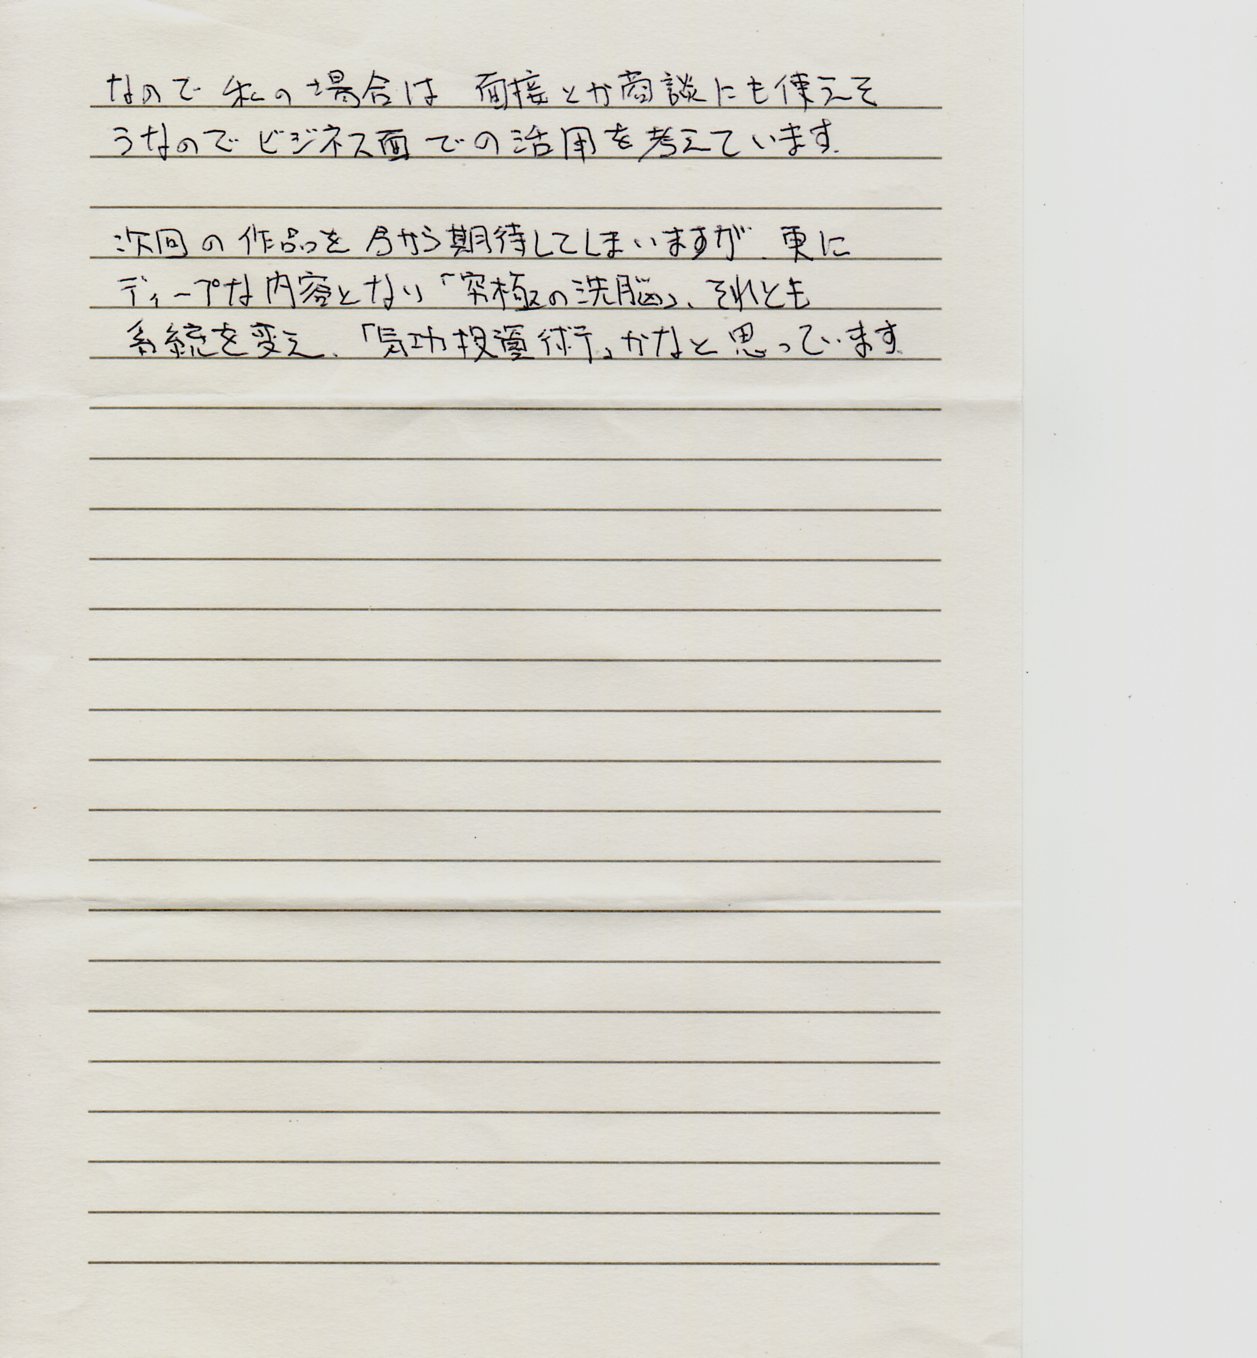 なので私の場合は 面接とか商談にも使えそ
うなのでビジネス面での活用を考えています.
次回の作品を今から期待してしまいますが、更に
ディープな内容とない「究極の洗脳」、それとも
系統を変え、「気功投資術」かなと思っています.